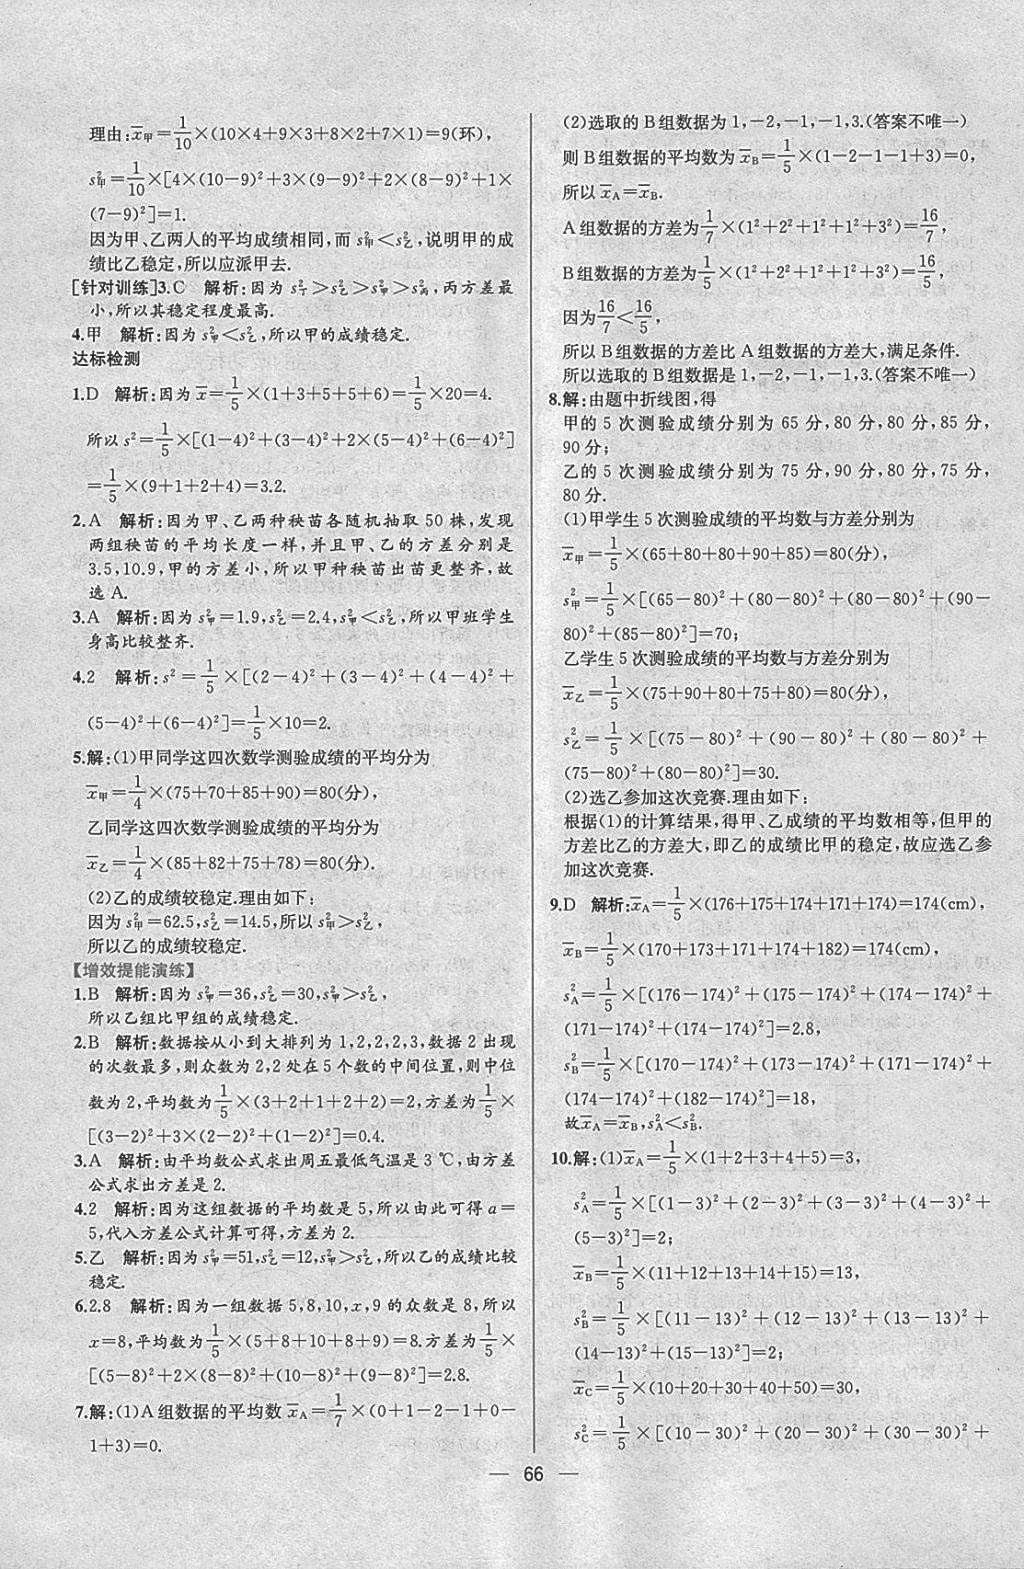 理由:x̄甲=1/10×(10×4+9×3+8×2+7×1)=9(环),
s²甲=1/10×[4×(10−9)²+3×(9−9)²+2×(8−9)²+1×
(7−9)²]=1.
因为甲、乙两人的平均成绩相同,而 s²甲<s²乙,说明甲的成
绩比乙稳定,所以应派甲去.
[针对训练]3.C 解析:因为 s²丁>s²乙>s²甲>s²丙,丙方差最
小,所以其稳定程度最高.
4.甲 解析:因为 s²甲<s²乙,所以甲的成绩稳定.
达标检测
1.D 解析:因为 x̄=1/5×(1+3+5+5+6)=1/5×20=4.
所以 s²=1/5×[(1−4)²+(3−4)²+2×(5−4)²+(6−4)²]
=1/5×(9+1+2+4)=3.2.
2.A 解析:因为甲、乙两种秧苗各随机抽取 50 株,发现
两组秧苗的平均长度一样,并且甲、乙的方差分别是
3.5,10.9,甲的方差小,所以甲种秧苗出苗更整齐,故
选 A.
3.A 解析:因为 s²甲=1.9,s²乙=2.4,s²甲<s²乙,所以甲班学生
身高比较整齐.
4.2 解析:s²=1/5×[(2−4)²+(3−4)²+(4−4)²+
(5−4)²+(6−4)²]=1/5×10=2.
5.解:(1)甲同学这四次数学测验成绩的平均分为
x̄甲=1/4×(75+70+85+90)=80(分),
乙同学这四次数学测验成绩的平均分为
x̄乙=1/4×(85+82+75+78)=80(分).
(2)乙的成绩较稳定.理由如下:
因为 s²甲=62.5,s²乙=14.5,所以 s²甲>s²乙,
所以乙的成绩较稳定.
【增效提能演练】
1.B 解析:因为 s²甲=36,s²乙=30,s²甲>s²乙,
所以乙组比甲组的成绩稳定.
2.B 解析:数据按从小到大排列为 1,2,2,2,3,数据 2 出现
的次数最多,则众数为 2,2处在 5 个数的中间位置,则中位
数为 2,平均数为1/5×(3+2+1+2+2)=2,方差为1/5×
[(3−2)²+3×(2−2)²+(1−2)²]=0.4.
3.A 解析:由平均数公式求出周五最低气温是 3 ℃,由方差
公式求出方差是2.
4.2 解析:因为这组数据的平均数是 5,所以由此可得 a=
5,代入方差公式计算可得,方差为 2.
5.乙 解析:因为 s²甲=51,s²乙=12,s²甲>s²乙,所以乙的成绩比较
稳定.
6.2.8 解析:因为一组数据 5,8,10,x,9 的众数是 8,所以
x=8,平均数为1/5×(5+8+10+8+9)=8.方差为1/5×
[(5−8)²+2×(8−8)²+(10−8)²+(9−8)²]=2.8.
7.解:(1)A 组数据的平均数 x̄A=1/7×(0+1−2−1+0−
1+3)=0.
(2)选取的 B 组数据为 1,−2,−1,−1,3.(答案不唯一)
则 B组数据的平均数为 x̄B=1/5×(1−2−1−1+3)=0,
所以 x̄A=x̄B.
A 组数据的方差为1/7×(1²+2²+1²+1²+3²)=16/7,
B组数据的方差为1/5×(1²+2²+1²+1²+3²)=16/5,
因为16/7<16/5,
所以 B 组数据的方差比 A 组数据的方差大,满足条件.
所以选取的 B 组数据是 1,−2,−1,−1,3.(答案不唯一)
8.解:由题中折线图,得
甲的 5 次测验成绩分别为 65 分,80 分,80 分,85 分,
90 分;
乙的 5 次测验成绩分别为 75 分,90 分,80 分,75 分,
80 分.
(1)甲学生 5 次测验成绩的平均数与方差分别为
x̄甲=1/5×(65+80+80+90+85)=80(分),
s²甲=1/5×[(65−80)²+(80−80)²+(80−80)²+(90−
80)²+(85−80)²]=70;
乙学生 5 次测验成绩的平均数与方差分别为
x̄乙=1/5×(75+90+80+75+80)=80(分),
s²乙=1/5×[(75−80)²+(90−80)²+(80−80)²+
(75−80)²+(80−80)²]=30.
(2)选乙参加这次竞赛.理由如下:
根据(1)的计算结果,得甲、乙成绩的平均数相等,但甲的
方差比乙的方差大,即乙的成绩比甲的稳定,故应选乙参
加这次竞赛.
9.D 解析:x̄A=1/5×(176+175+174+171+174)=174(cm),
x̄B=1/5×(170+173+171+174+182)=174(cm),
s²A=1/5×[(176−174)²+(175−174)²+(174−174)²+
(171−174)²+(174−174)²]=2.8,
s²B=1/5×[(170−174)²+(173−174)²+(171−174)²+
(174−174)²+(182−174)²]=18,
故x̄A=x̄B,s²A<s²B.
10.解:(1)x̄A=1/5×(1+2+3+4+5)=3,
s²A=1/5×[(1−3)²+(2−3)²+(3−3)²+(4−3)²+
(5−3)²]=2;
x̄B=1/5×(11+12+13+14+15)=13,
s²B=1/5×[(11−13)²+(12−13)²+(13−13)²+
(14−13)²+(15−13)²]=2;
x̄C=1/5×(10+20+30+40+50)=30,
s²C=1/5×[(10−30)²+(20−30)²+(30−30)²+
— 66 —